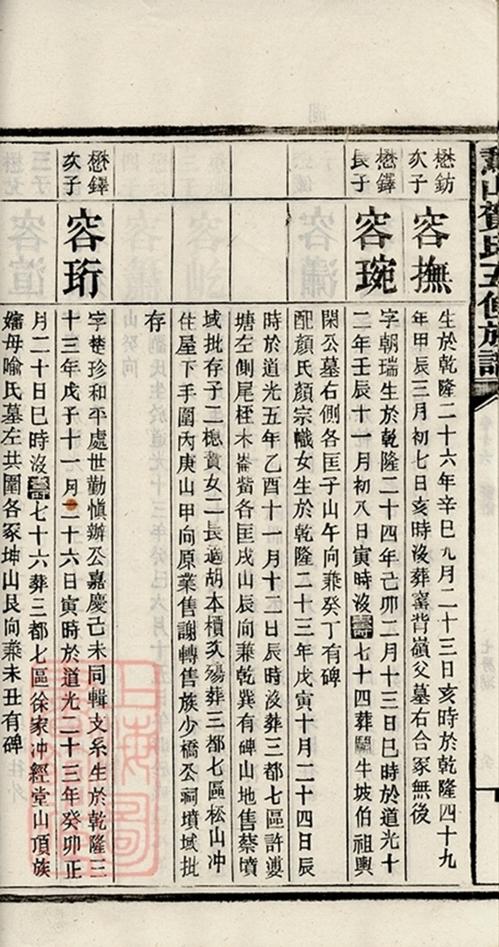 賀氏五修族譜
懋鈁
次子
容撫
生於乾隆二十六年辛巳九月二十三日亥時於乾隆四十九
年甲辰三月初七日亥時沒葬窰背嶺父墓右合冢無後
懋鐸
長子
容琬
字朝瑞生於乾隆二十四年己卯二月十三日巳時於道光十
二年壬辰十一月初八日寅時沒壽七十四葬關牛坡伯祖輿
閑公墓右側各匡子山午向兼癸丁有碑
配顏氏顏宗幟女生於乾隆二十三年戊寅十月二十四日辰
時於道光五年乙酉十一月十二日辰時沒葬三都七區許
塘左側尾桎木崙觜各匡戌山辰向兼乾巽有碑山地售蔡墳
域批存子二樬蕡女二長適胡本檟次殤葬三都七區松山冲
住屋下手圍內庚山甲向原業售謝轉售族少橋公祠墳域批
存
懋鐸
次子
容珩
字楚珍和平處世勤愼辦公嘉慶己未同輯支系生於乾隆三
十三年戊子十一月二十六日寅時於道光二十三年癸卯正
月二十日巳時沒壽七十六葬三都七區徐家冲經堂山頂族
嬸母喻氏墓左共圍各冢坤山艮向兼未丑有碑
上海圖